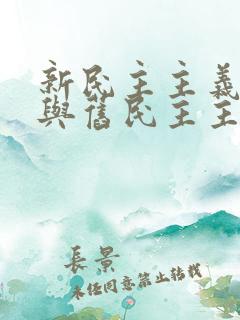 新民主主義
與舊民主主
長景
未經同意禁止轉載